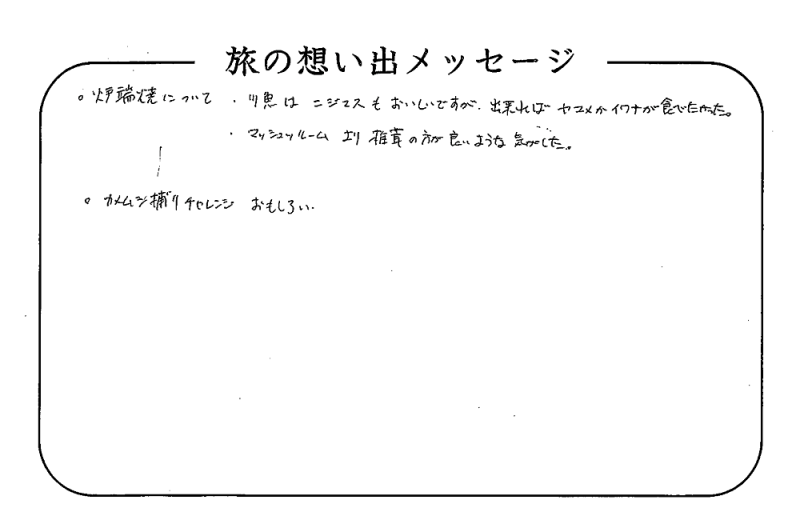 旅の想い出メッセージ
。炉端焼について ・川魚は ニジマスも おいしいですが、出来れば ヤマメか イワナが食べたかった。
・マッシュルーム より 椎茸の方が 良いような 気がした。
。カメムシ捕りチャレンジ おもしろい.